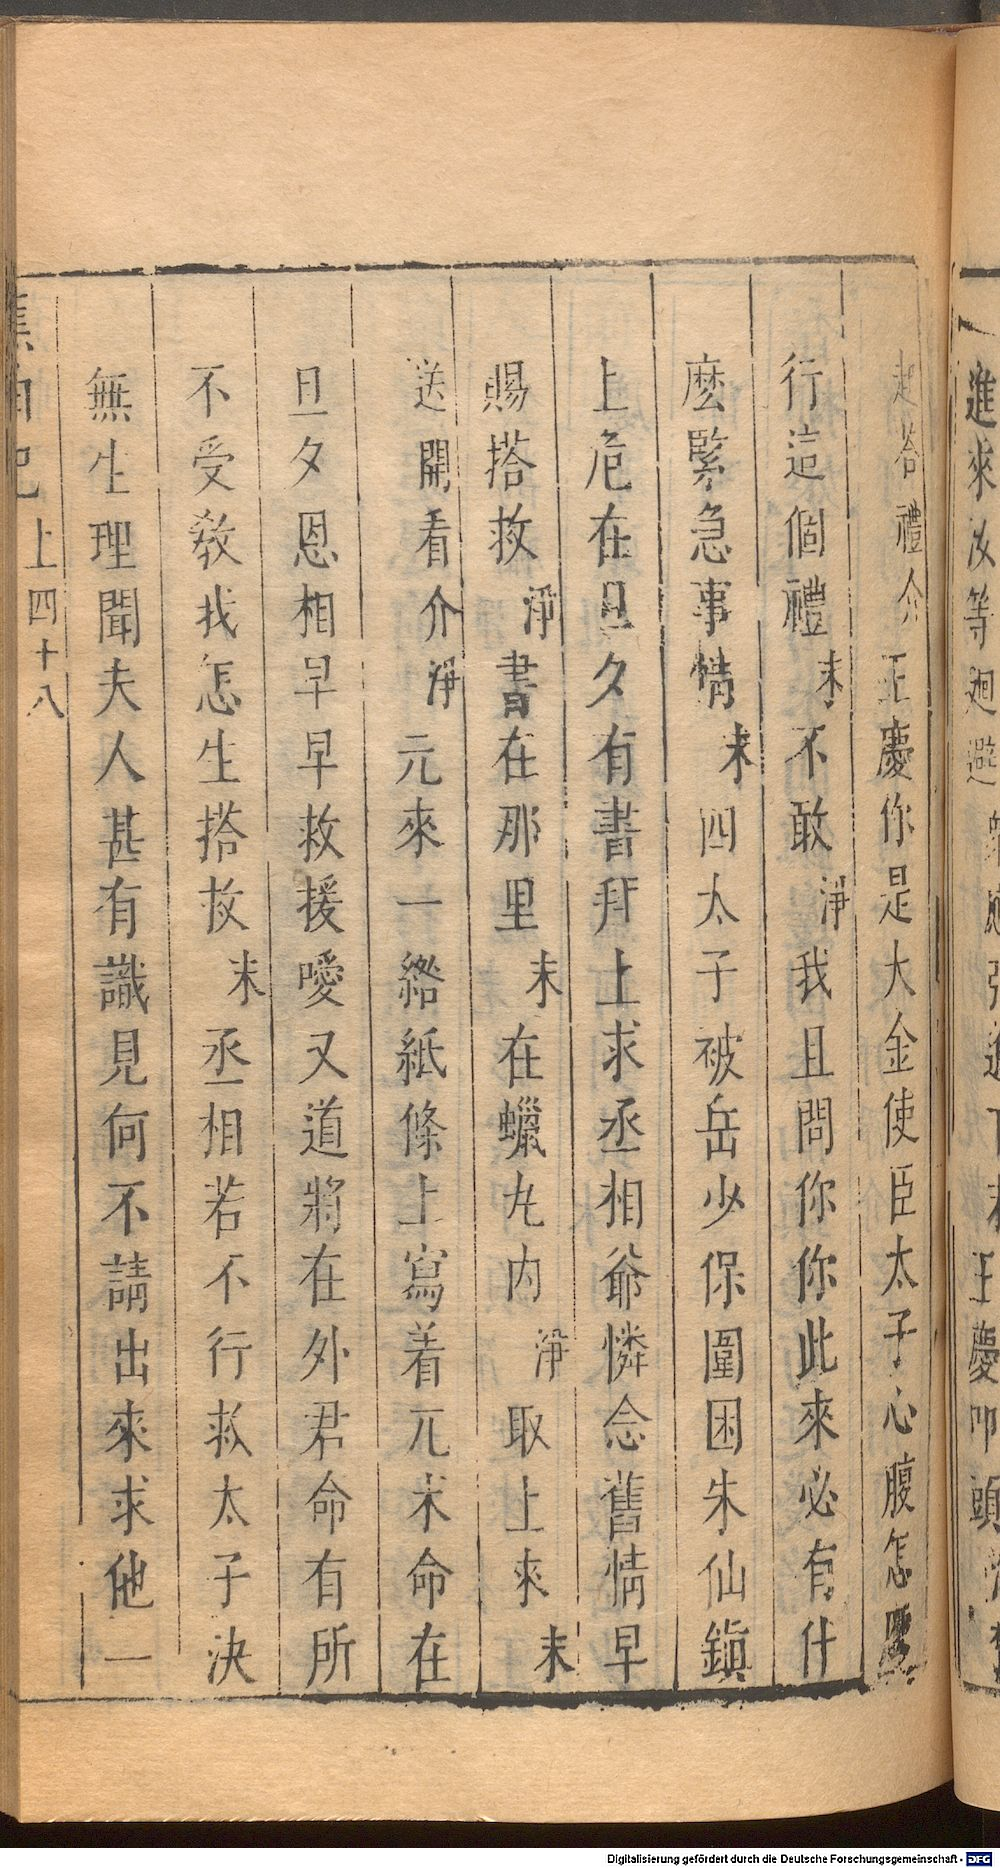 起答禮介王慶你是大金使臣太子心腹怎
行這個禮末不敢淨我且問你你此來必有什
麽緊急事情末四太子被岳少保圍困朱仙鎮
上危在旦夕有書拜上求丞相爺憐念舊情早
賜搭救淨書在那里末在蠟丸内淨取上來末
送開看介淨元來一綹紙條上寫着兀朮命在
旦夕恩相早早救援噯又道將在外君命有所
不受敎我怎生搭救末丞相若不行救太子決
無生理聞夫人甚有識見何不請出來求他一
上四十八
進來汝等迴避
王慶叩頭
Digitalisierung gefördert durch die Deutsche Forschungsgemeinschaft - DFG